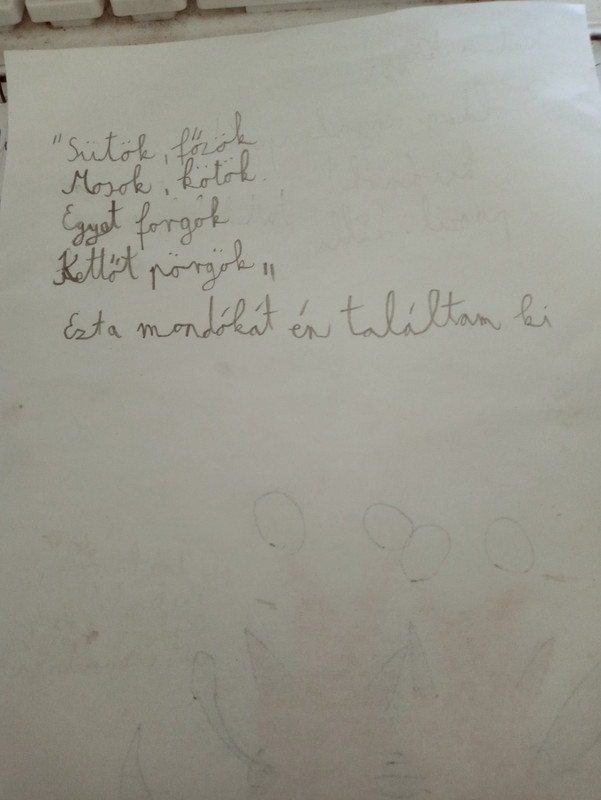 "Sütök, főzök
Mosok, kötök.
Egyet forgok
Kettőt pörgök"
Ezta mondókát én találtam ki